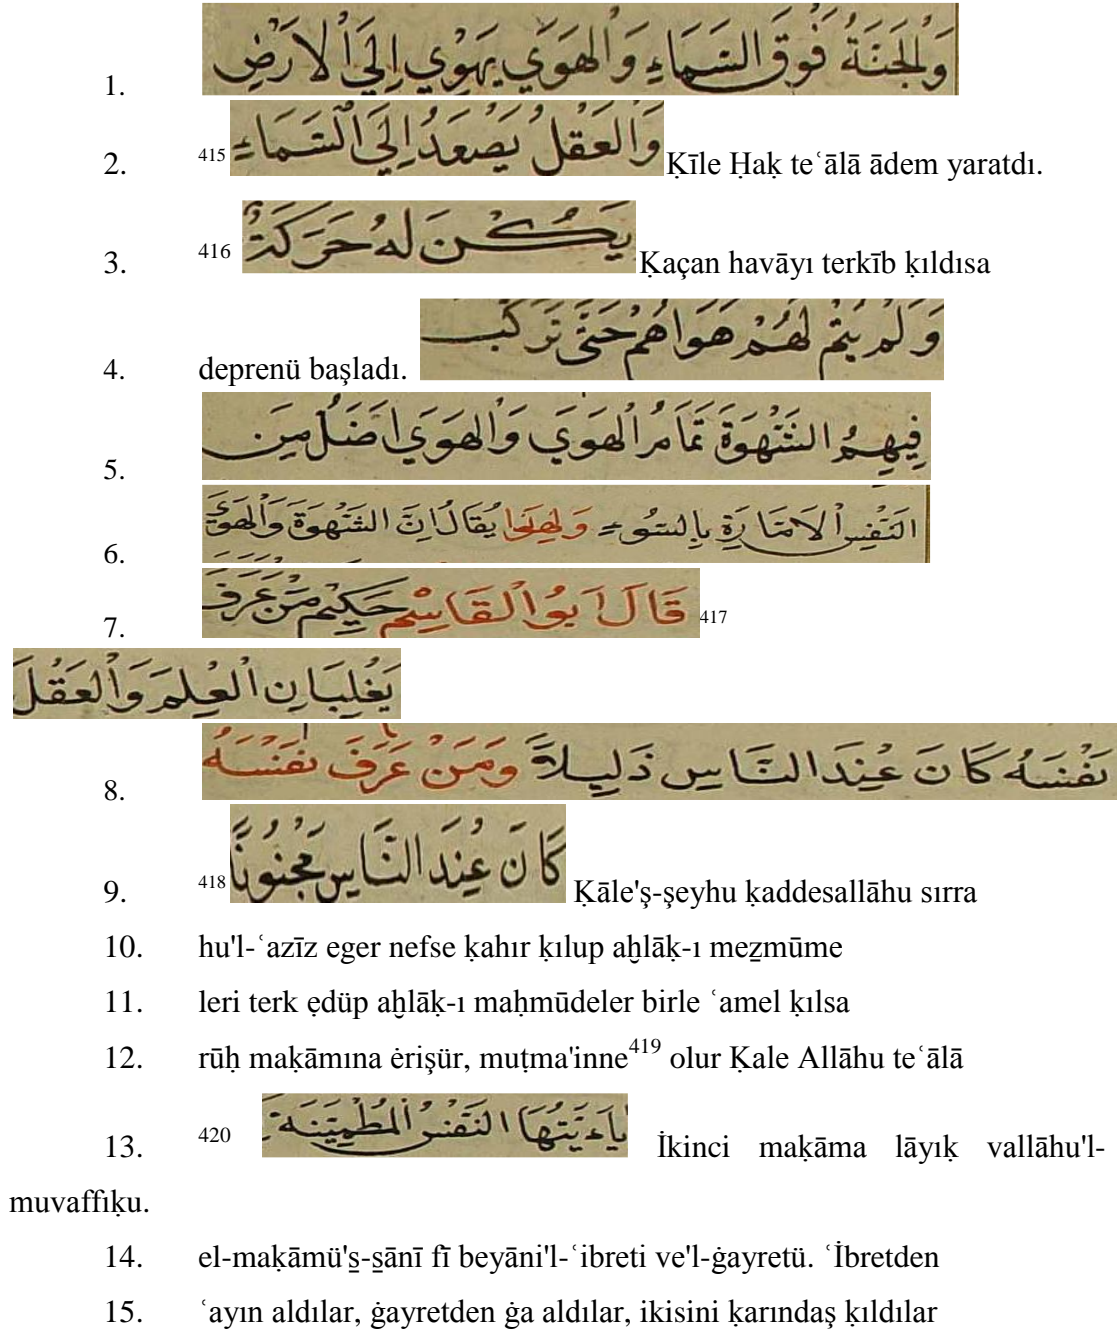 1. وَالْجَنَّةُ فَوْقَ السَّمَاءِ وَالْهَوَي يَهْوِي اِلَي الْاَرْضِ
2. 415 وَالْعَقْلُ يَصْعَدُ اِلَي السَّمَاءِ Ḳīle Ḥaḳ teʿālā ādem yaratdı.
3. 416 يَكُنْ لَهُ حَرَكَةٌ Ḳaçan havāyı terkīb ḳıldısa
4. deprenü başladı. وَلَمْ يُتِمْ لَهُمْ هَوَاهُمْ حَتَّى تَرَكَّبَ
5. فِيهِمُ الشَّهْوَةَ تَمَامُ الْهَوَي وَالْهَوَي اَضَلُّ مِنَ
6. النَّفْسِ الْاَمَّارَةِ بِالسُّوءِ وَلِهَذَا يُقَالُ اِنَّ الشَّهْوَةَ وَالْهَوَيَ
7. قَالَ اَبُو الْقَاسِمْ حَكِيْم مَنْ عَرَفَ 417
يَغْلِبَانِ الْعِلْمَ وَالْعَقْلَ
8. نَفْسَهُ كَانَ عِنْدَ النَّاسِ ذَلِيلاً وَمَنْ عَرَفَ نَفْسَهُ
9. 418 كَانَ عِنْدَ النَّاسِ مَجْنُونًا Ḳāle'ş-şeyhu ḳaddesallāhu sırra
10. hu'l-ʿazīz eger nefse ḳahır ḳılup aḫlāḳ-ı meẕmūme
11. leri terk ẹdüp aḫlāḳ-ı maḥmūdeler birle ʿamel ḳılsa
12. rūḥ maḳāmına ėrişür, muṭma'inne419 olur Ḳale Allāhu teʿālā
13. 420 يَااَيَّتُهَا النَّفْسُ الْمُطْمَئِنَّةُ İkinci maḳāma lāyıḳ vallāhu'l-
muvaffıḳu.
14. el-maḳāmü's̱-s̱ānī fī beyāni'l-ʿibreti ve'l-ġayretü. ʿİbretden
15. ʿayın aldılar, ġayretden ġa aldılar, ikisini ḳarındaş ḳıldılar